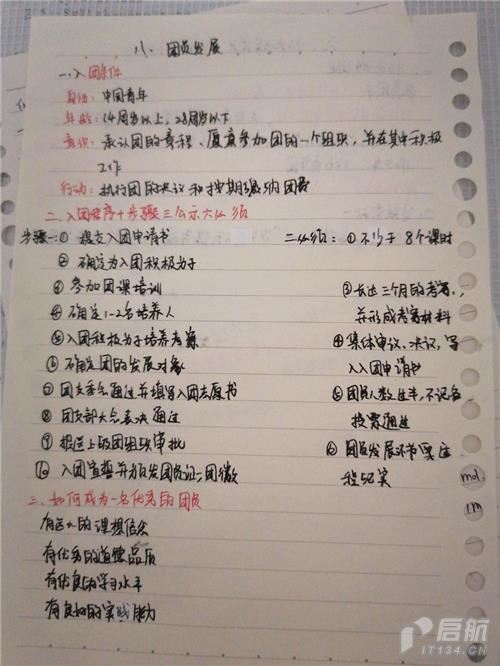 八、团员发展
一、入团条件
身份:中国青年
年龄:14周岁以上,28周岁以下
意识:承认团的章程、愿意参加团的一个组织,并在其中积极
工作
行动:执行团的决议和按期缴纳团费
二、入团程序十步骤三公示六必须
步骤:① 提交入团申请书
二六必须:① 不少于 8个课时
② 确定为入团积极分子
③ 参加团课培训
③ 长达三个月的考察,
④ 确定1-2名培养人
并形成考察材料
⑤ 入团积极分子培养考察
④ 集体审议、决议,写
⑥ 确定团的发展对象
入入团申请书
⑦ 团支委会通过并填写入团志愿书
⑤ 团员人数过半,不记名
⑧ 团支部大会表决通过
投票通过
⑨ 报送上级团组织审批
⑥ 团员发展环节要全
⑩ 入团宣誓并颁发团员证、团徽
程纪实
三、如何成为一名优秀的团员
有远大的理想信念
有优秀的道德品质
有优良的学习水平
有良好的实践能力
mol
启航
IT134.CN